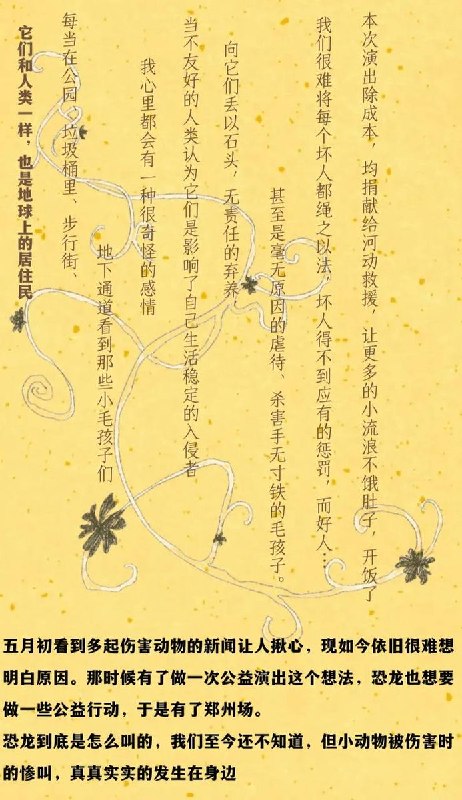 它们和人类一样，也是地球上的居住民
每当在公园、垃圾桶里、步行街、
地下通道看到那些小毛孩子们
我心里都会有一种很奇怪的感情
当不友好的人类认为它们是影响了自己生活稳定的入侵者
向它们丢以石头，无责任的弃养，
甚至是毫无原因的虐待、杀害手无寸铁的毛孩子。
我们很难将每个坏人都绳之以法，坏人得不到应有的惩罚，而好人…
本次演出除成本，均捐献给河动救援，让更多的小流浪不饿肚子，开饭了
五月初看到多起伤害动物的新闻让人揪心，现如今依旧很难想
明白原因。那时候有了做一次公益演出这个想法，恐龙也想要
做一些公益行动，于是有了郑州场。
恐龙到底是怎么叫的，我们至今还不知道，但小动物被伤害时
的惨叫，真真实实的发生在身边